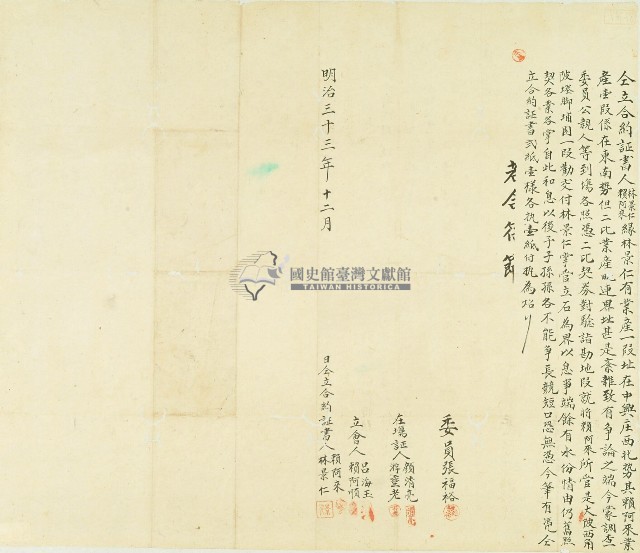 仝立合約証書人林景仁賴阿來緣林景仁有業產一段址在中興庄西北勢其賴阿來業
產壹段係在東南勢但二比業產毗連界址甚是紊雜致有爭論之端今蒙調查
委員公親人等到塲各照憑二比契券對驗諸勘地段就將賴阿來所管是大陂西角
陂坔脚埔園一段勸交付林景仁掌管立石為界以息爭端餘有水份情由仍舊照
契各業各掌自此和息以後子子孫孫各不能爭長競短口恐無憑今筆有憑仝
立合約証書弍紙壹樣各執壹紙付執為炤
國史館臺灣文獻館
TAIWAN HISTORICA
委員張福裕
在塲証人賴清亮
立會人呂海玉
賴阿順
日仝立合約証書人賴阿來
林景仁
明治三十三年十二月